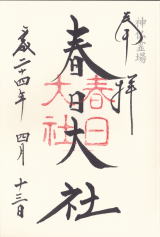 奉拝
神仏霊場
春日大社
春日大社
平成二十四年 四月 十三日